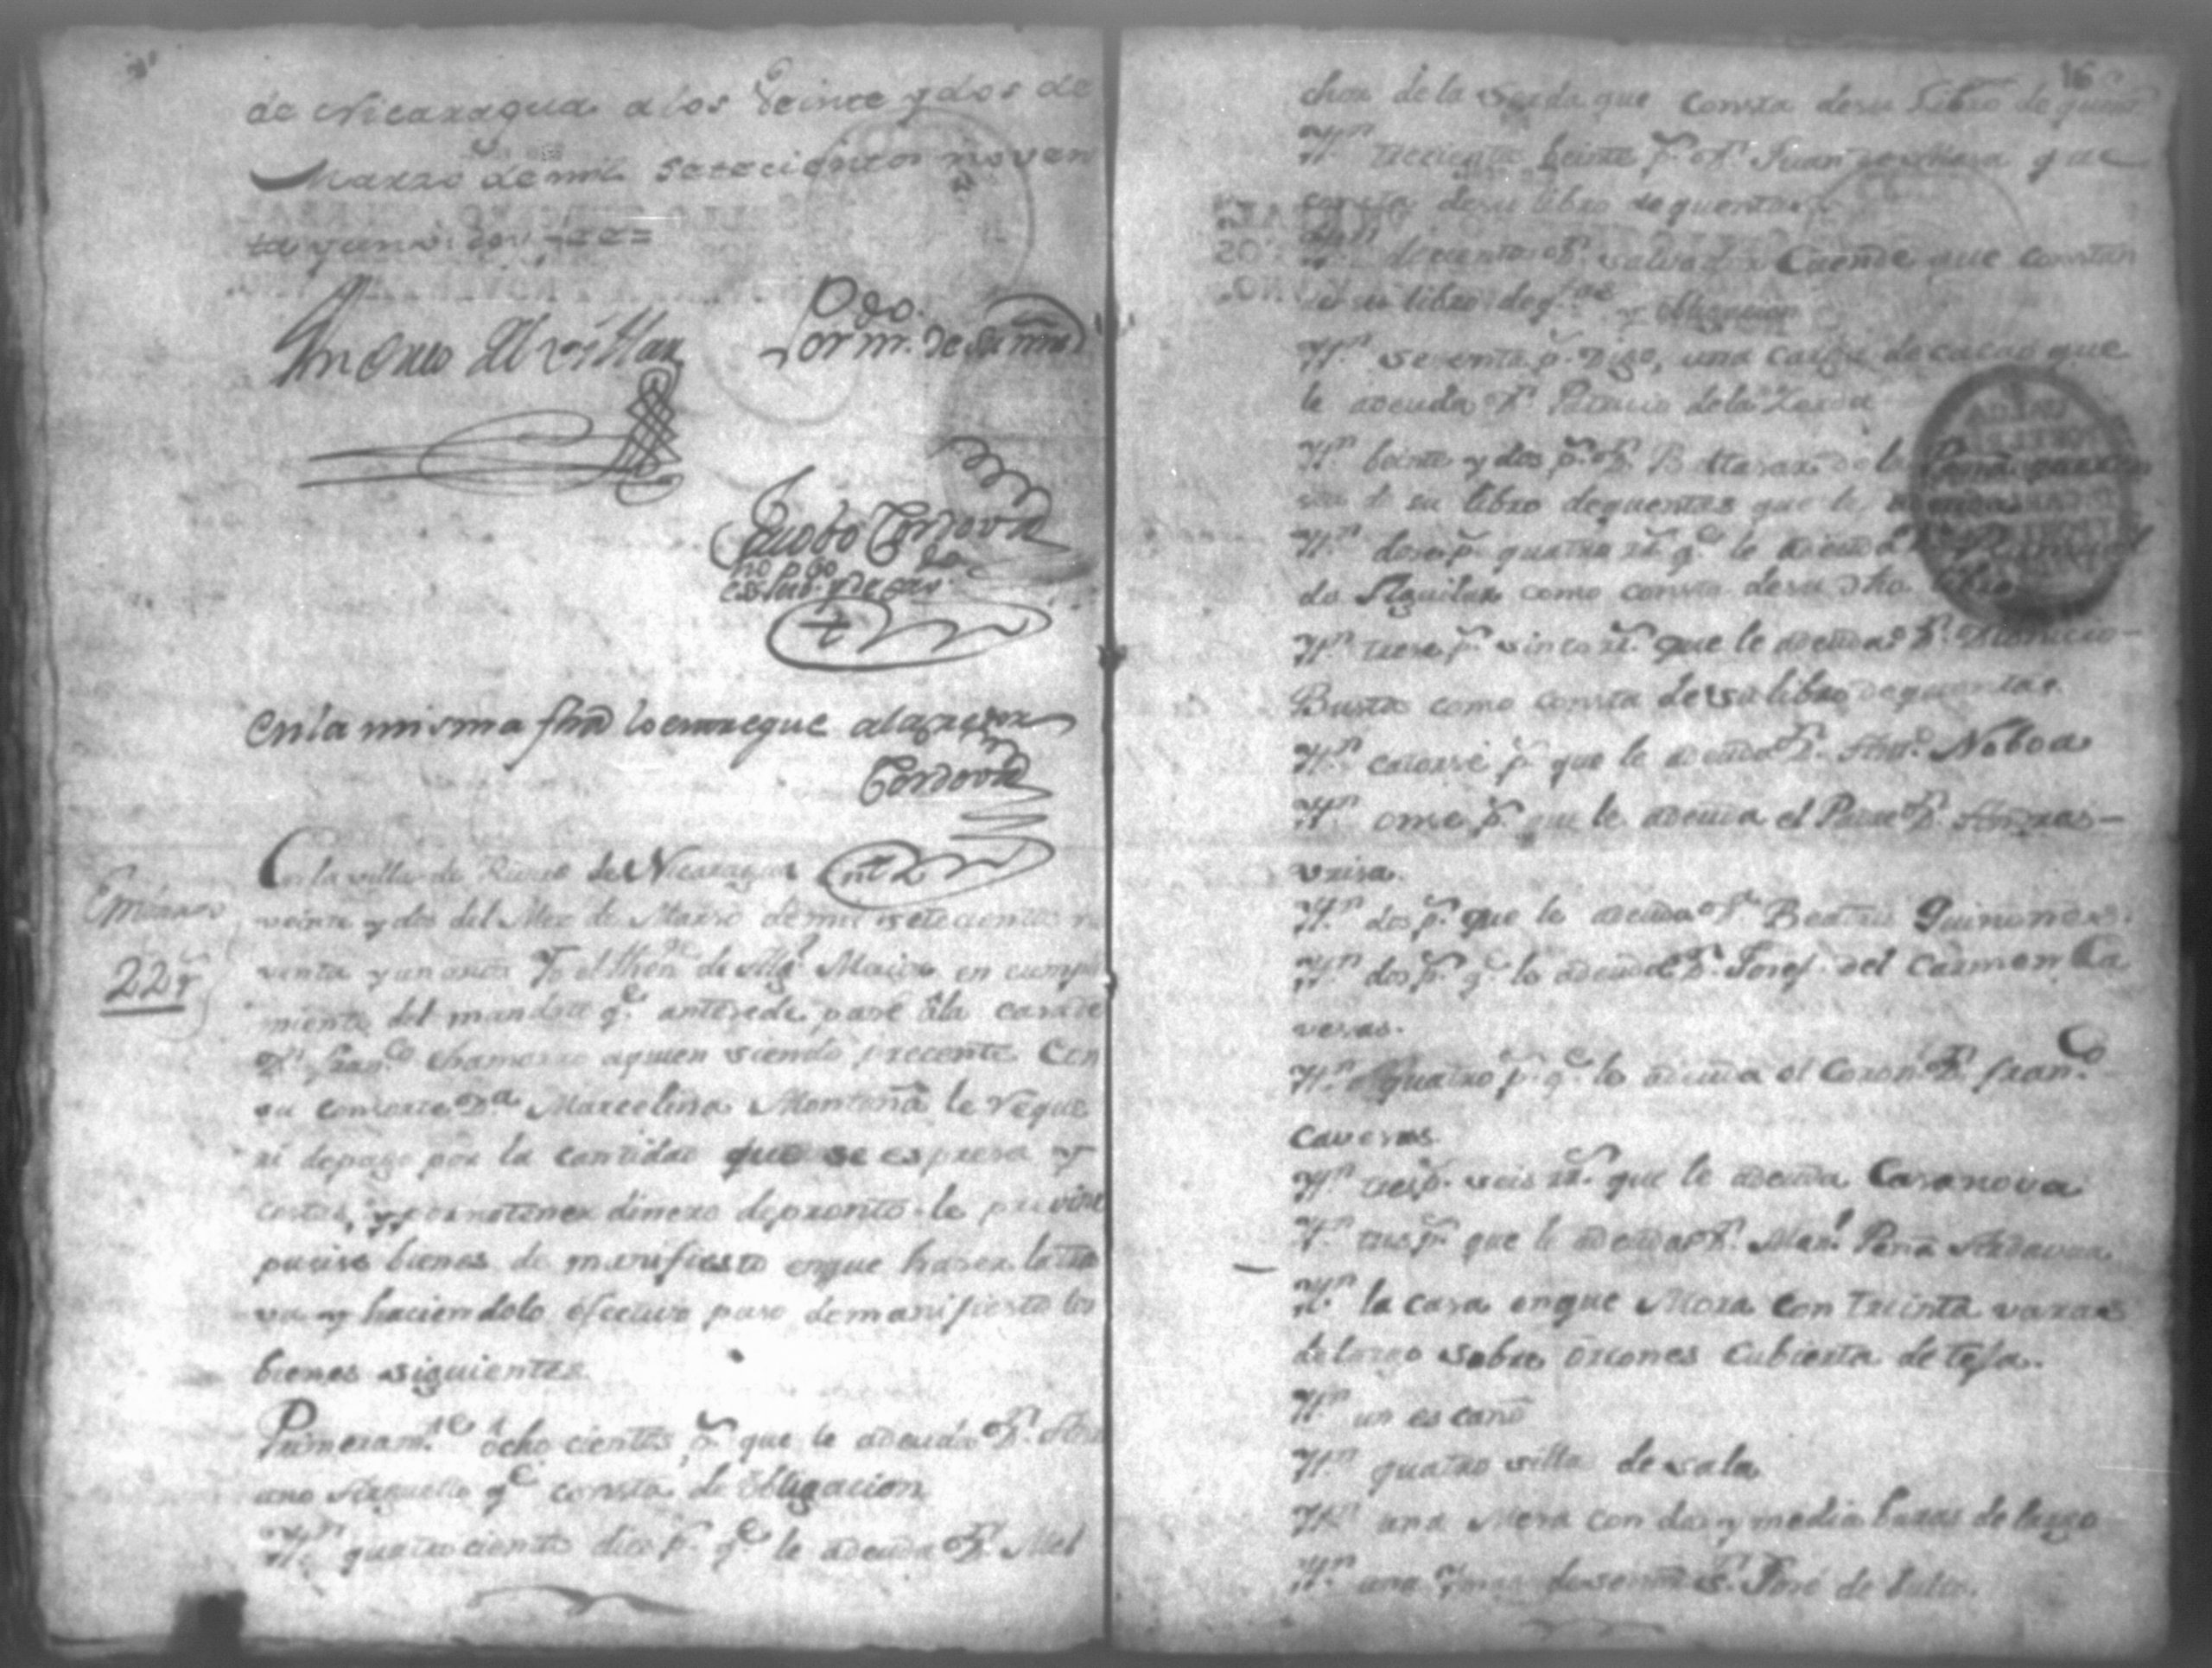 de Nicaragua a los Veinte y dos de
Marzo de mil setecientos noven
ta y un a.s
Antonio
Por m. de su md
Jacobo Cordova
ess.no pub.
en la misma fha lo entregue a la parte
Cordova
En la villa de Rivas de Nicaragua en
veinte y dos del Mez de Marzo de mil setecientos no
venta y un años Yo el then.te de Alg.l Maior en cumpli
miento del mandto. q.e antesede pasé a la casa de
D.n Fran.co Chamorro aquien siendo precente con
su consorte D.a Marcelina Montoña le reque
ri depago por la cantidad que se espresa y
costas, y por no tener dinero depronto le previne
pusise bienes de manifiesto en que haser la tra
va y haciendolo efectivo puso de manifiesto los
bienes siguientes
22 r
Primeram.te ocho cientos p.s que le adeuda D.n
ano Arguello q.e consta de obligacion
Ytt.n quatrocientos dies p.s q.e le adeuda D.n Mel
16
chor de la Serda que consta desu libro de quent
Ytt.n trecientos beinte p.s D.n Juan de Mora que
consta desu libro de quentas
Ytt.n docientos D.n Salvador que constan
de su libro de q.tas y obligacion
Ytt.n sesenta p.s digo, una carga de cacao que
le adeuda D.n Patricio de la Zerda
Ytt.n beinte y dos p.s D.n Baltasar de la
su libro dequentas que le adeuda
Ytt.n dose p.s quatro rr.s q.e le adeuda D.n
do Aguilar como consta desu dho. libro
Ytt.n trese p.s sinco rr.s que le adeuda D.n
Bustos como consta de su libro dequentas
Ytt.n catorse p.s que le adeuda D.n Ant.o Noboa
Ytt.n onse p.s que le adeuda el Padre D.n Andres
Ytt.n dos p.s que le adeuda D.a Beatris Quiñones.
Ytt.n dos p.s q.e le adeuda D.n Josef del Carmen Ca
veras.
Ytt.n quatro p.s q.e le adeuda el Coron.l D.n Fran.co
Caveras.
Ytt.n tres p.s seis rr.s que le adeuda Casanova
Ytt.n tres p.s que le adeuda D.n Man.l Peña
Ytt.n la casa enque Mora con treinta varas
delargo sobre orcones cubierta de teja.
Ytt.n un escaño
Ytt.n quatro silla de sala
Ytt.n una Mesa con dos y media baras de largo
Ytt.n una deseñor S.n José de bulto.